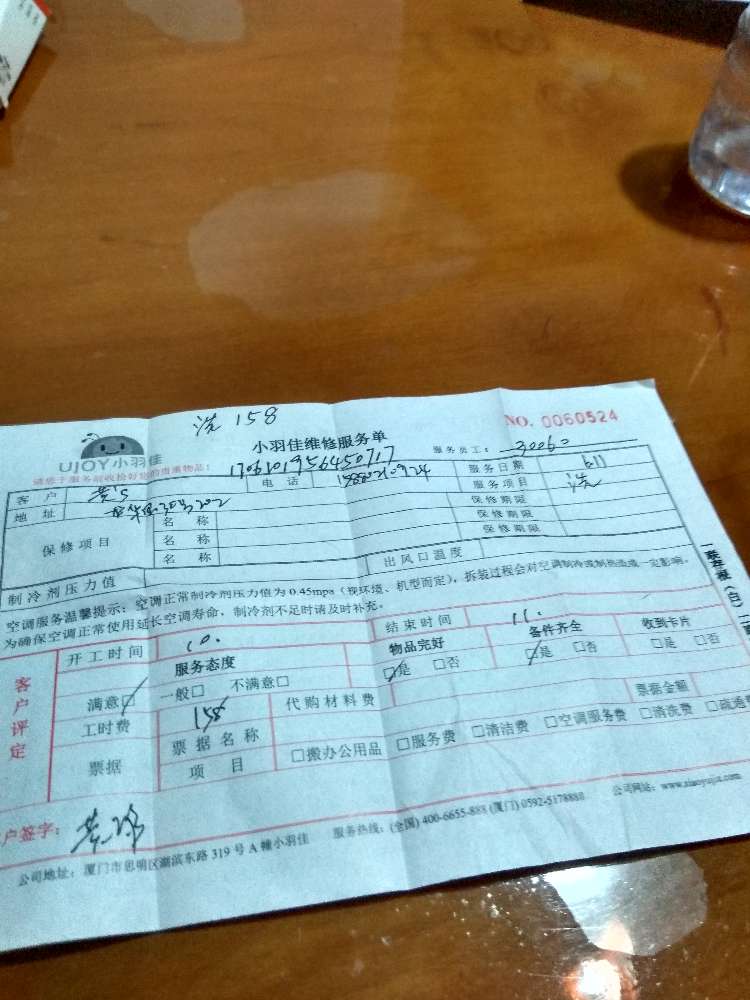 洗 158
UJOY小羽佳
小羽佳维修服务单
NO. 0060524
请您于服务前收检好您的贵重物品!
1706101956450717
服务员工: 30060
客户
电话
服务日期 611
地址
服务项目 洗
保修项目
名称
保修期限
名称
保修期限
名称
保修期限
制冷剂压力值
出风口温度
空调服务温馨提示: 空调正常制冷剂压力值为0.45mpa (视环境、机型而定), 拆装过程会对空调制冷或制热造成一定影响。
为确保空调正常使用延长空调寿命, 制冷剂不足时请及时补充。
客户评定
开工时间 10.
结束时间 11.
服务态度
物品完好
备件齐全
收到卡片
满意□ 一般□ 不满意□
□是 □否
□是 □否
□是 □否
工时费 158
代购材料费
票据
票据名称
票据金额
项目
□搬办公用品 □服务费 □清洁费 □空调服务费 □清洗费 □疏通
户签字:
公司地址: 厦门市思明区湖滨东路 319 号 A 幢小羽佳
服务热线: (全国) 400-6655-888 (厦门) 0592-5178888
公司网站: www.xiaoyujia.com
一联存根 (白)